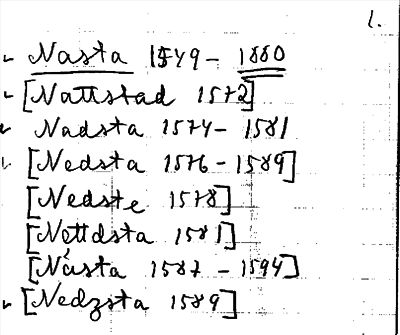 1.
Nasta 1549 - 1880
[Nattstad 1572]
Nadsta 1574 - 1581
[Nedsta 1576 - 1589]
[Nedste 1578]
[Nettdsta 1581]
[Násta 1587 - 1594]
[Nedzsta 1589]